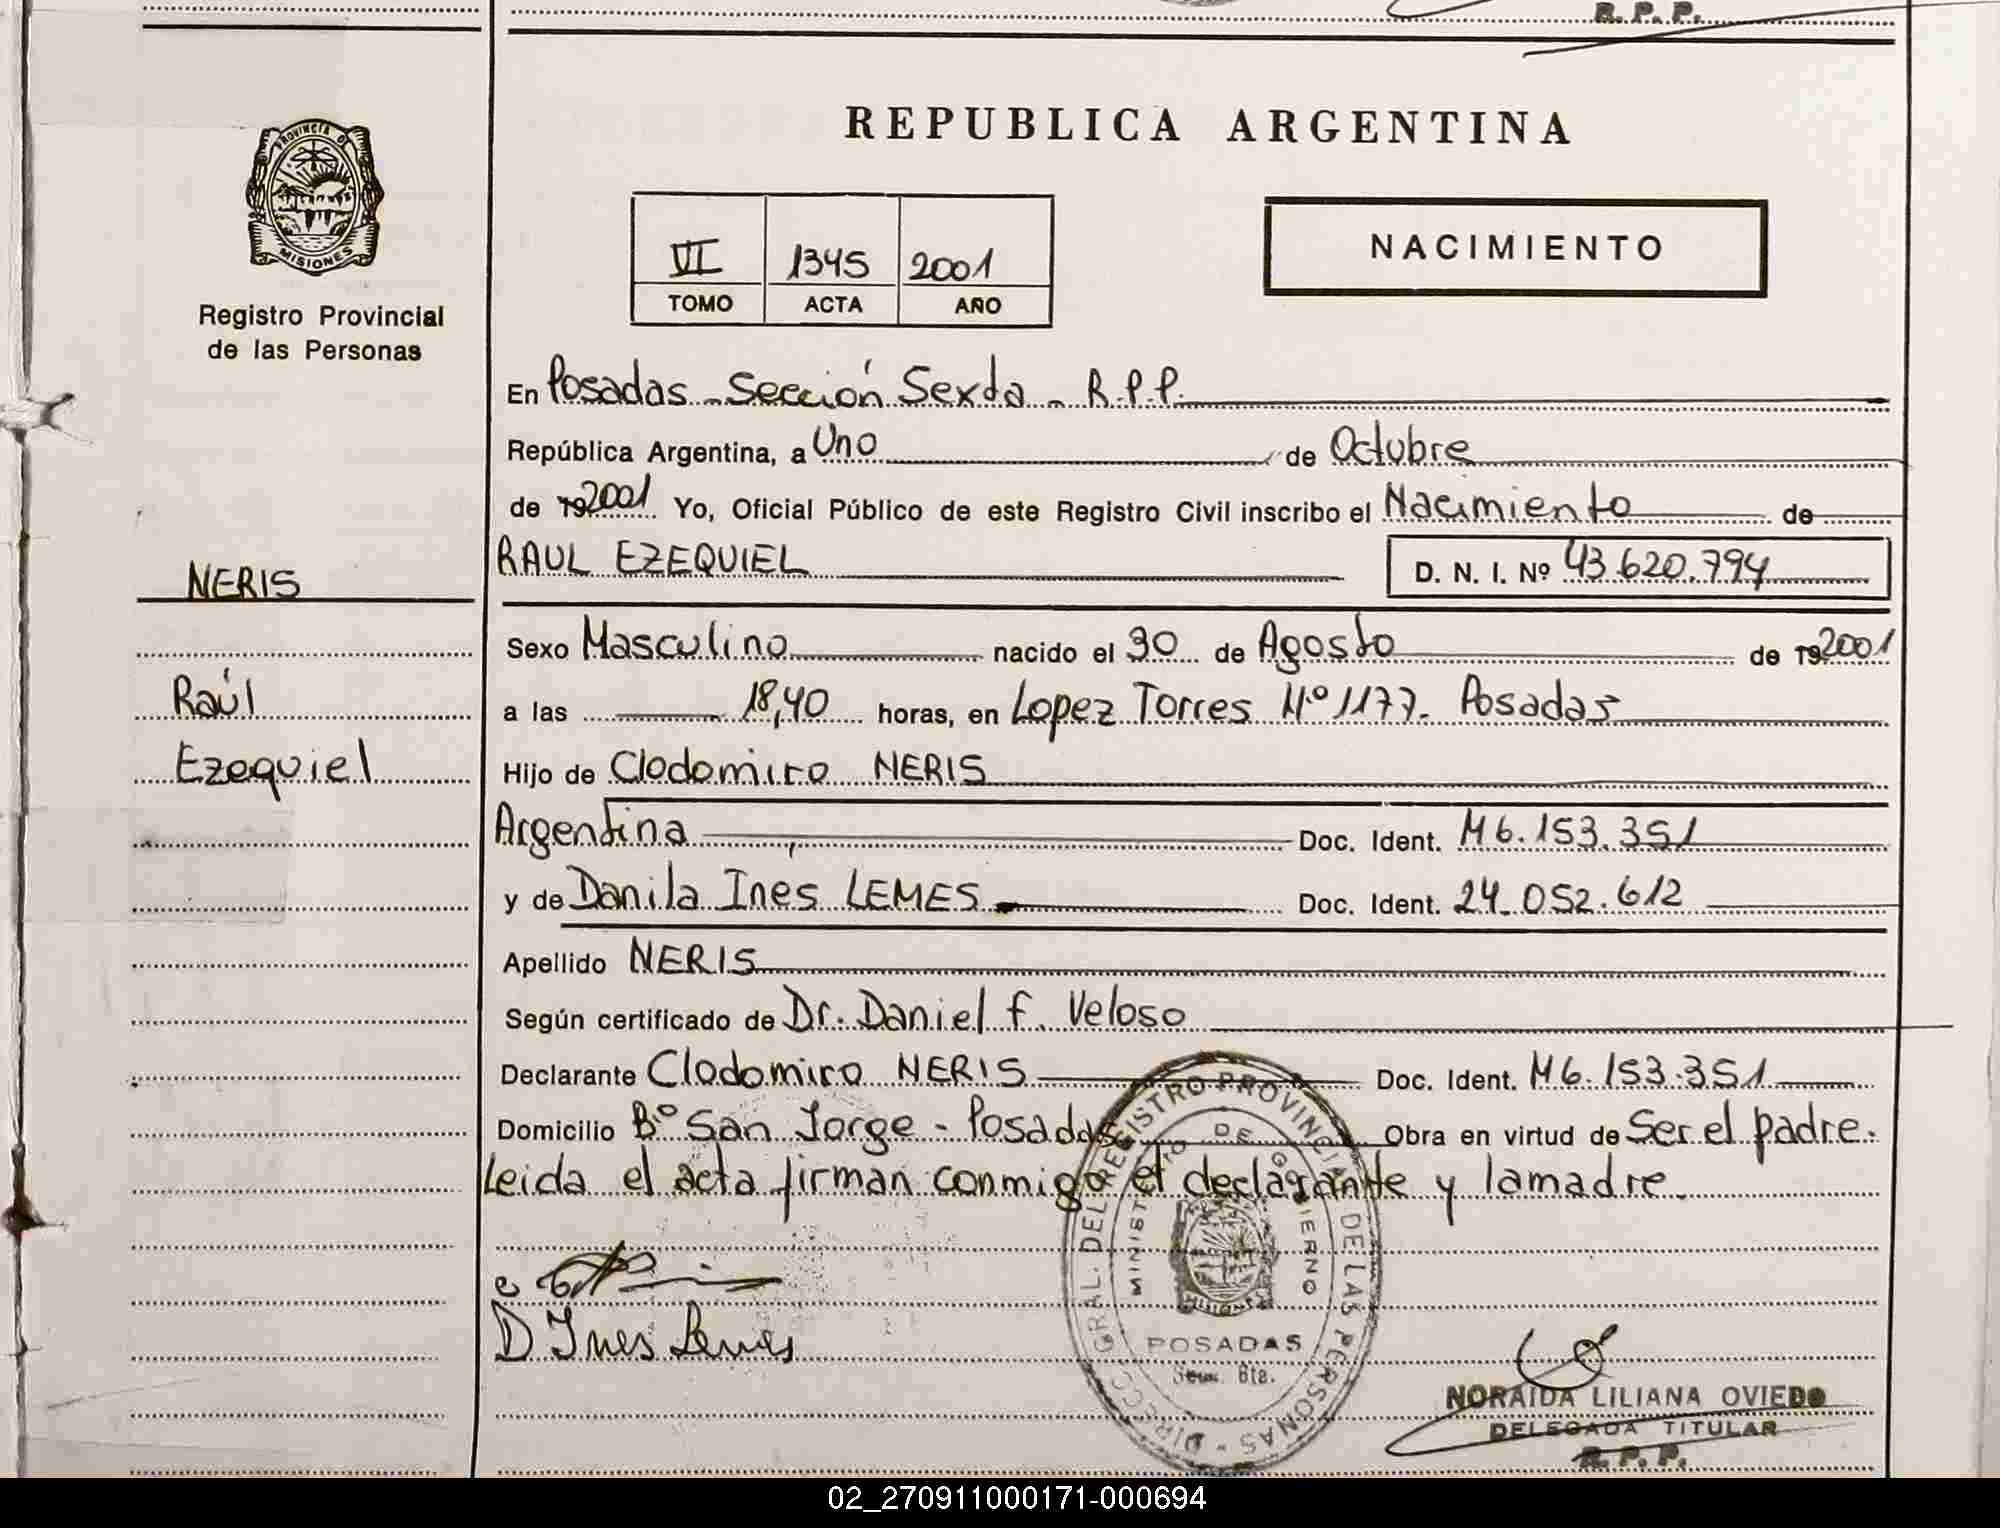 R. P. P.
REPUBLICA ARGENTINA
PROVINCIA DE
MISIONES
Registro Provincial
de las Personas
VI 1345 2001
TOMO ACTA AÑO
NACIMIENTO
En Posadas - Sección Sexta - R.P.P.
República Argentina, a Uno de Octubre
de 19 2001 Yo, Oficial Público de este Registro Civil inscribo el Nacimiento de
NERIS
RAUL EZEQUIEL D. N. I. Nº 43.620.794
Sexo Masculino nacido el 30 de Agosto de 19 2001
Raúl
a las 18,40 horas, en Lopez Torres Nº 1177. Posadas
Ezequiel
Hijo de Clodomiro NERIS
Argentina Doc. Ident. M6.153.351
y de Danila Inés LEMES Doc. Ident. 24.052.612
Apellido NERIS
Según certificado de Dr. Daniel F. Veloso
Declarante Clodomiro NERIS Doc. Ident. M6.153.351
Domicilio Bº San Jorge - Posadas Obra en virtud de Ser el padre.
Leida el acta firman conmigo el declarante y la madre.
DIRECC. GRAL. DEL REGISTRO PROVINCIAL DE LAS PERSONAS
MINISTERIO DE GOBIERNO
MISIONES
POSADAS
Secc. 6ta.
D Ines Lemes
NORAIDA LILIANA OVIEDO
DELEGADA TITULAR
R. P. P.
02_270911000171-000694